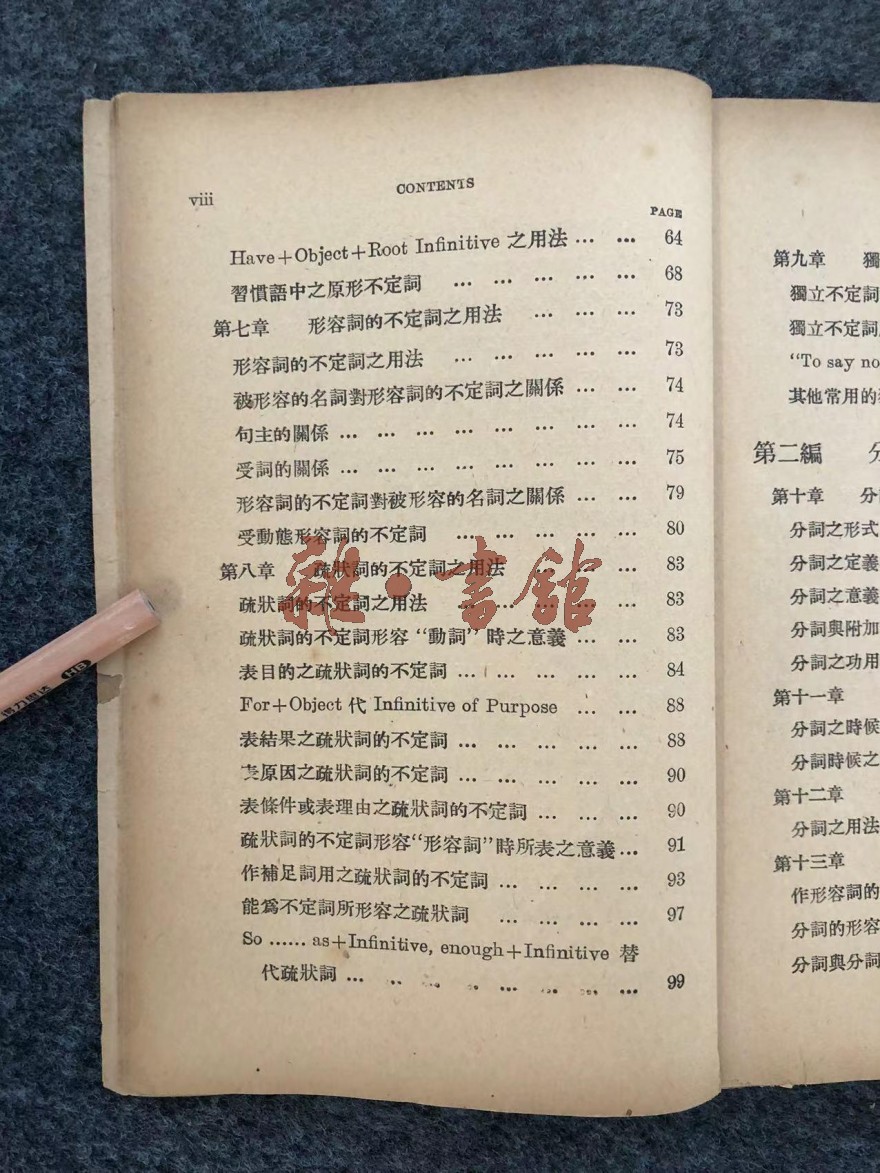 viii
CONTENTS
PAGE
Have+Object+Root Infinitive 之用法 ... ... 64
習慣語中之原形不定詞 ... ... ... ... ... 68
第七章 形容詞的不定詞之用法 ... ... ... 73
形容詞的不定詞之用法 ... ... ... ... ... 73
被形容的名詞對形容詞的不定詞之關係 ... ... 74
句主的關係 ... ... ... ... ... ... ... ... 74
受詞的關係 ... ... ... ... ... ... ... ... 75
形容詞的不定詞對被形容的名詞之關係 ... ... 79
受動態形容詞的不定詞 ... ... ... ... ... 80
第八章 疏狀詞的不定詞之用法 ... ... ... 83
疏狀詞的不定詞之用法 ... ... ... ... ... 83
疏狀詞的不定詞形容“動詞”時之意義 ... ... 83
表目的之疏狀詞的不定詞 ... ... ... ... ... 84
For+Object 代 Infinitive of Purpose ... ... 88
表結果之疏狀詞的不定詞 ... ... ... ... ... 88
表原因之疏狀詞的不定詞 ... ... ... ... ... 90
表條件或表理由之疏狀詞的不定詞 ... ... ... 90
疏狀詞的不定詞形容“形容詞”時所表之意義 ... 91
作補足詞用之疏狀詞的不定詞 ... ... ... ... 93
能爲不定詞所形容之疏狀詞 ... ... ... ... 97
So ...... as+Infinitive, enough+Infinitive 替
代疏狀詞 ... ... ... ... ... ... ... ... 99
第九章 獨
獨立不定詞
獨立不定詞
“To say no
其他常用的
第二編 分
第十章 分詞
分詞之形式
分詞之定義
分詞之意義
分詞與附加
分詞之功用
第十一章
分詞之時候
分詞時候之
第十二章
分詞之用法
第十三章
作形容詞的
分詞的形容
分詞與分詞
雜·書館
HB